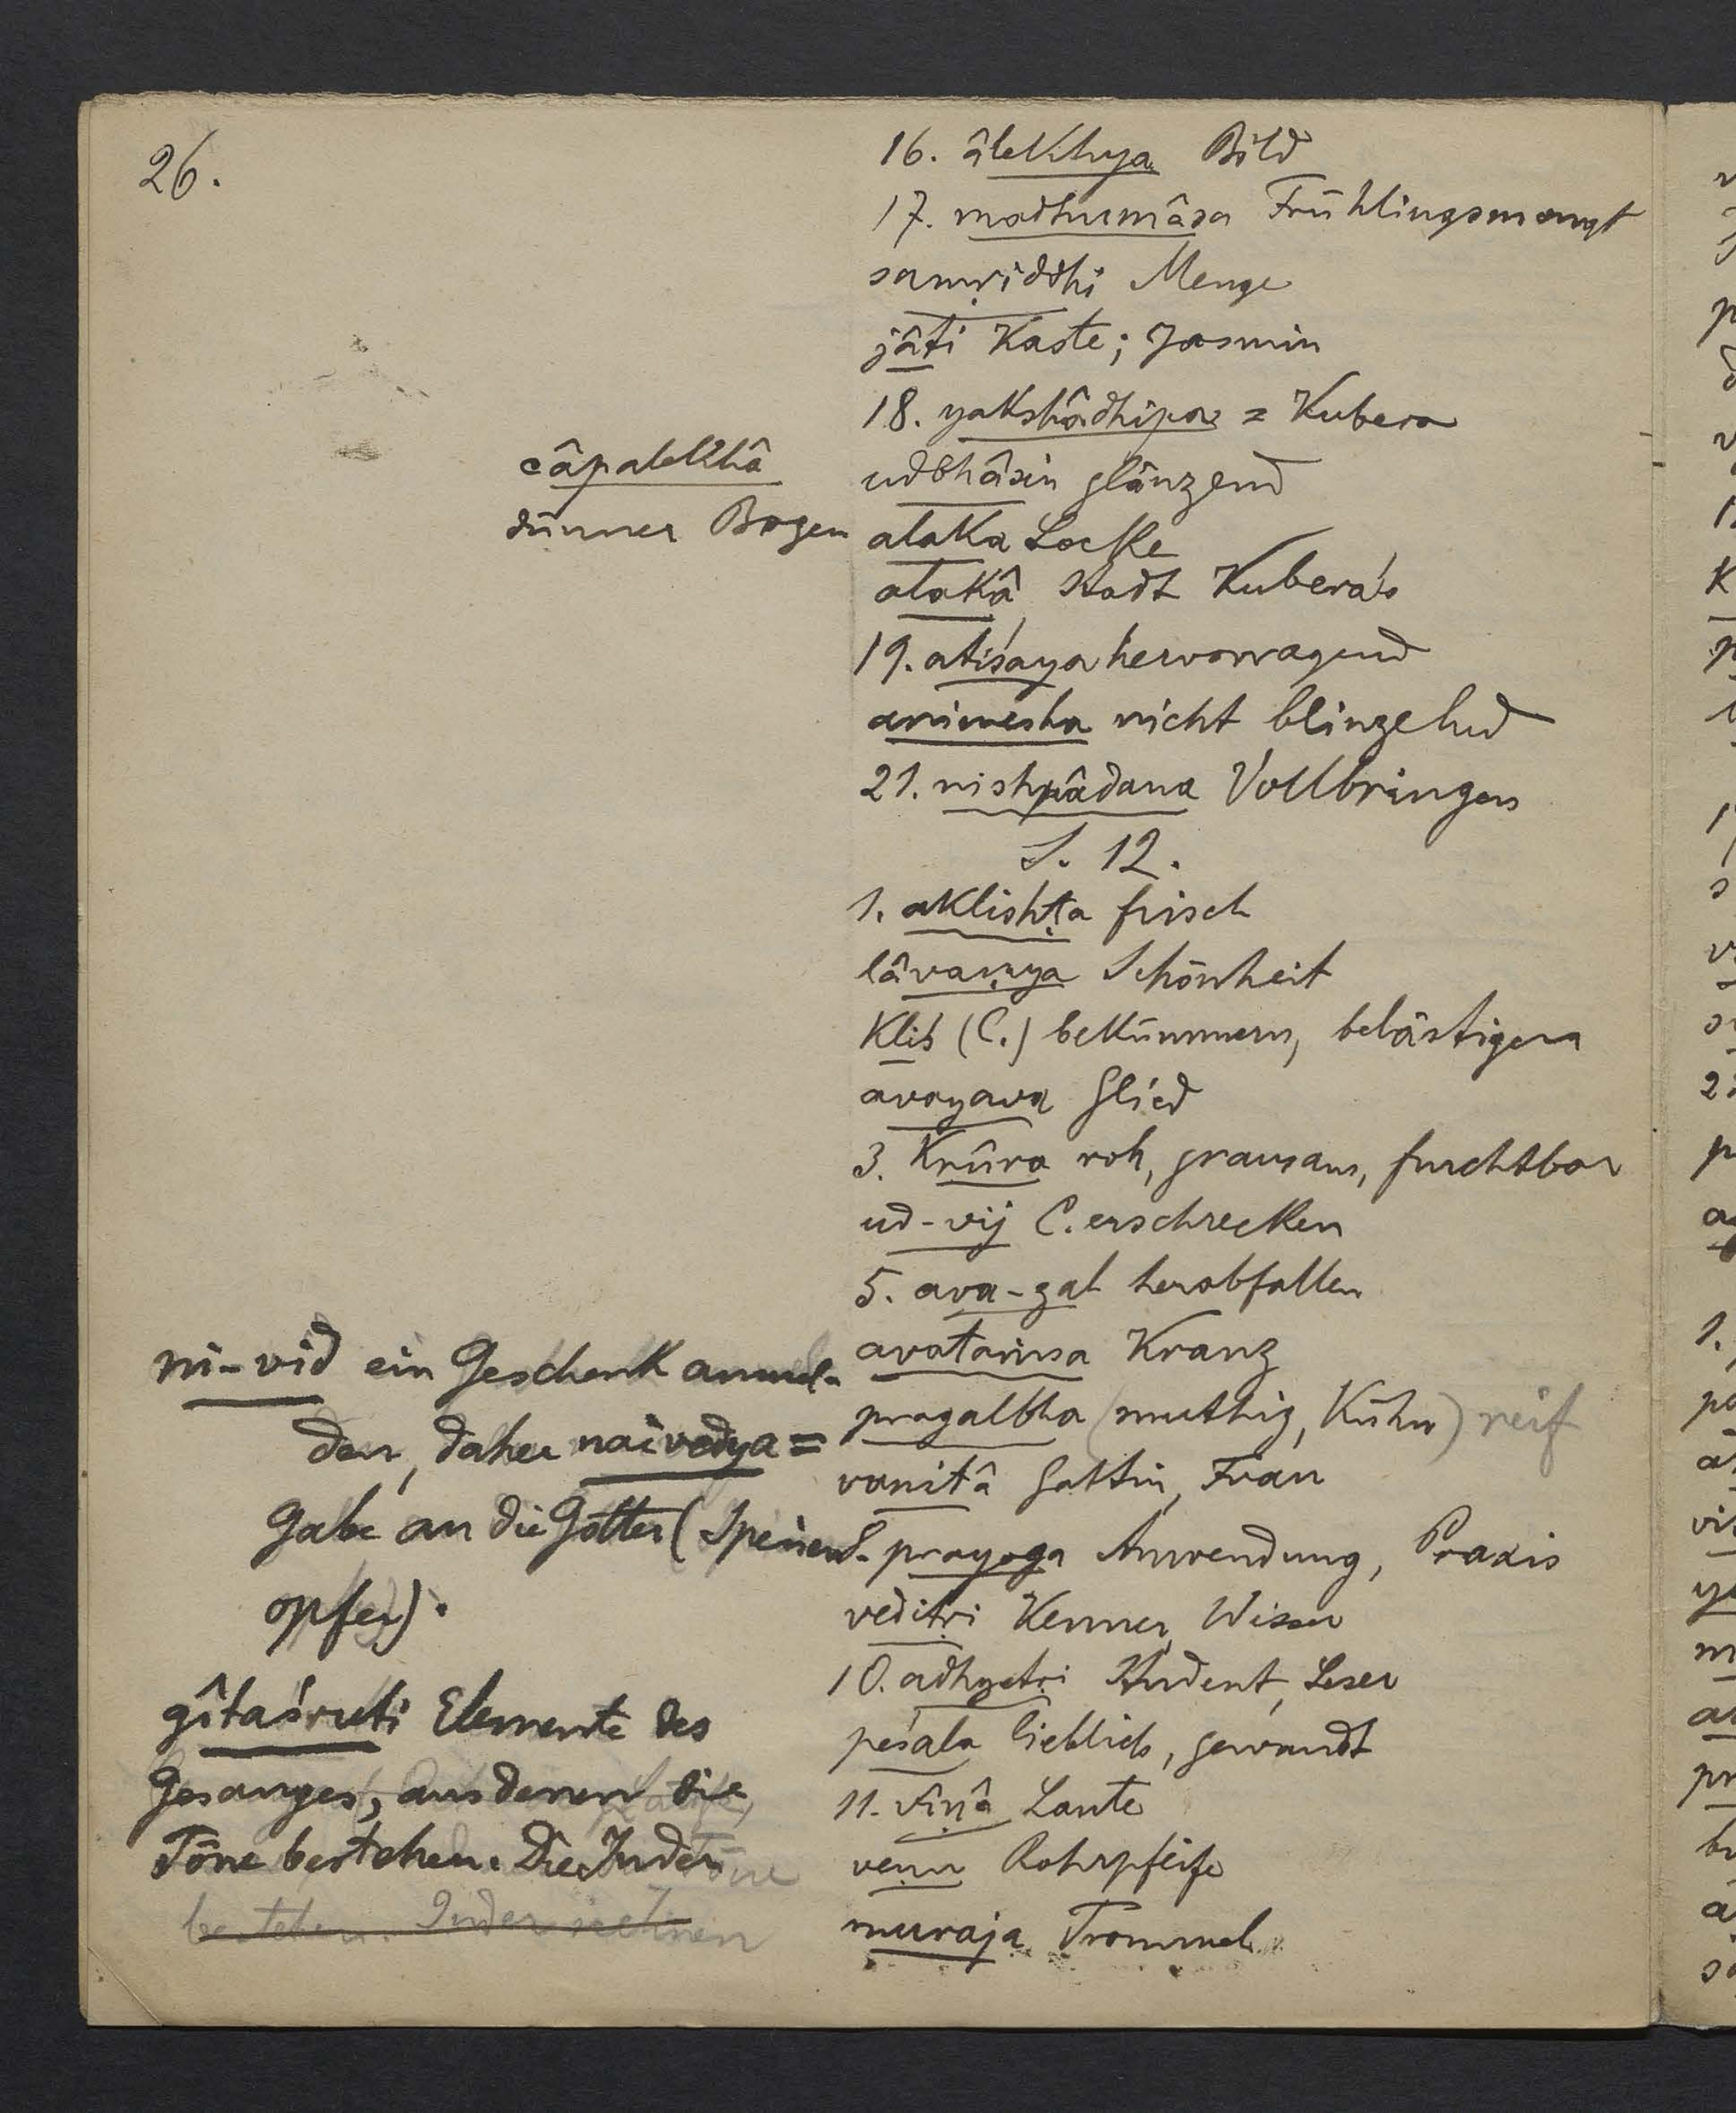 26.
16. âlekhya Bild
17. madhumâsa Frühlingsmonat
samṛiddhi Menge
jâti Kaste; Jasmin
18. yakshâdhipa = Kubera
udbhâsin glänzend
alaka Locke
alakâ Stadt Kubera's
19. atiśaya hervorragend
animesha nicht blinzelnd
21. nishpâdana Vollbringen
S. 12.
1. aklishṭa frisch
lâvaṇya Schönheit
kliś (C.) bekümmern, belästigen
avayava Glied
3. krûra roh, grausam, furchtbar
ud-vij C. erschrecken
5. ava-gal herabfallen
avataṃsa Kranz
pragalbha (muthig, kühn) reif
vanitâ Gattin, Frau
8. prayoga Anwendung, Praxis
veditṛi Kenner, Wisser
10. adhyetṛi Student, Leser
peśala lieblich, gewandt
11. vîṇâ Laute
veṇu Rohrpfeife
muraja Trommel
câpalekhâ
dünner Bogen
ni-vid ein Geschenk anmel-
den, daher naivedya =
Gabe an die Götter (Speisen-
opfer).
gîtaśruti Elemente des
Gesanges, aus denen die
Töne bestehen. Die Inder
bestehen. Inder nehmen